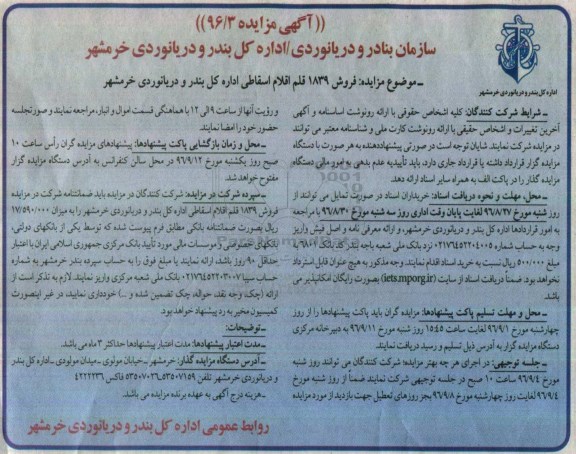 ((آگهی مزایده ۹۶/۳))
سازمان بنادر و دریانوردی /اداره کل بندر و دریانوردی خرمشهر
اداره کل بندر و دریانوردی خرمشهر
ـ موضوع مزایده: فروش ۱۸۳۹ قلم اقلام اسقاطی اداره کل بندر و دریانوردی خرمشهر
ـ شرایط شرکت کنندگان: کلیه اشخاص حقوقی با ارائه رونوشت اساسنامه و آگهی
آخرین تغییرات و اشخاص حقیقی با ارائه رونوشت کارت ملی و شناسنامه معتبر می توانند
در مزایده شرکت نمایند. شایان توجه است در صورتی پیشنهاددهنده به هر صورت با دستگاه
مزایده گزار قرارداد داشته یا قرارداد جاری دارد، باید تأییدیه عدم بدهی به امور مالی دستگاه
مزایده گذار را در پاکت الف به همراه سایر اسناد ارائه دهد.
ـ محل، مهلت و نحوه دریافت اسناد: خریداران اسناد در صورت تمایل می توانند از
روز شنبه مورخ ۹۶/۸/۲۷ لغایت پایان وقت اداری روز سه شنبه مورخ ۹۶/۸/۳۰ با مراجعه
به امور قراردادها اداره کل بندر و دریانوردی خرمشهر، و ارائه معرفی نامه و اصل فیش واریز
وجه به حساب شماره ۰۲۱۷۶۴۵۲۲۰۴۰۰۵ نزد بانک ملی شعبه باجه گمرک بانک ۹۸۰۷ به
مبلغ ۵۰۰/۰۰۰ ریال نسبت به خرید اسناد اقدام نمایند، وجه مذکور به هیچ عنوان قابل استرداد
نخواهد بود. ضمناً دریافت اسناد از سایت (iets.mporg.ir) بصورت رایگان امکانپذیر می
باشد.
ـ محل و مهلت تسلیم پاکت پیشنهادها: مزایده گران باید پاکت پیشنهادها را از روز
چهارشنبه مورخ ۹۶/۹/۱ لغایت ساعت ۱۵:۴۵ روز شنبه مورخ ۹۶/۹/۱۱ به دبیرخانه مرکزی
دستگاه مزایده گزار به آدرس ذیل تسلیم و رسید دریافت نمایند.
ـ جلسه توجیهی: در اجرای هر چه بهتر مزایده؛ شرکت کنندگان می توانند روز شنبه
مورخ ۹۶/۹/۴ ساعت ۱۰ صبح در جلسه توجیهی شرکت نمایند ضمناً از روز شنبه مورخ
۹۶/۹/۴ لغایت روز چهارشنبه مورخ ۹۶/۹/۸ بجز روزهای تعطیل جهت بازدید از مورد مزایده
و رؤیت آنها از ساعت ۹ الی ۱۲ با هماهنگی قسمت اموال و انبار، مراجعه نمایند و صورتجلسه
حضور خود را امضا نمایند.
ـ محل و زمان بازگشایی پاکت پیشنهادها: پیشنهادهای مزایده گران رأس ساعت ۱۰
صبح روز یکشنبه مورخ ۹۶/۹/۱۲ در محل سالن کنفرانس به آدرس دستگاه مزایده گزار
مفتوح خواهد شد.
ـ سپرده شرکت در مزایده: شرکت کنندگان در مزایده باید ضمانتنامه شرکت در مزایده
فروش ۱۸۳۹ قلم اقلام اسقاطی اداره کل بندر و دریانوردی خرمشهر را به میزان ۱۷/۵۹۰/۰۰۰
ریال بصورت ضمانتنامه بانکی مطابق فرم پیوست شده که توسط یکی از بانکهای دولتی،
بانکهای خصوصی یا موسسات مالی مورد تأیید بانک مرکزی جمهوری اسلامی ایران با اعتبار
حداقل ۹۰ روز باشد، ارائه نمایند یا مبلغ فوق را به حساب سپرده بندر خرمشهر به شماره
حساب سیبا ۰۲۱۷۶۴۵۲۲۰۳۰۰۷ بانک ملی شعبه مرکزی واریز نمایند. لازم به تذکر است از
ارائه (چک، وجه نقد، حواله، چک تضمین شده و ...) خودداری نمایید، در غیر اینصورت
کمیسیون مخیر به رد پیشنهاد خواهد بود.
ـ توضیحات:
ـ مدت اعتبار پیشنهادها: مدت اعتبار پیشنهادها حداکثر ۳ ماه می باشد.
ـ آدرس دستگاه مزایده گذار: خرمشهر ـ خیابان مولوی ـ میدان مولودی ـ اداره کل بندر
و دریانوردی خرمشهر تلفن ۵۳۵۰۷۱۵۹ـ۵۳۵۰۷۰۲۶ فاکس ۴۲۲۲۲۳۶
ـ هزینه درج آگهی به عهده برنده مزایده می باشد.
روابط عمومی اداره کل بندر و دریانوردی خرمشهر